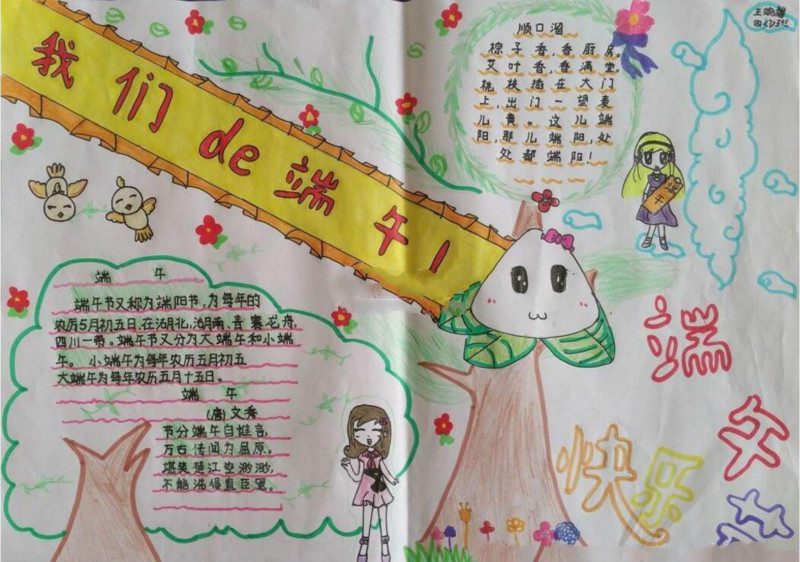 我们de端午!
端 午
端午节又称为端阳节,为每年的
农历5月初五日,在湖北,湖南,贵
四川一带。端午节又分为大端午和小端
午。小端午为每年农历五月初五
大端午为每年农历五月十五日。
端 午
(唐)文秀
节分端午自谁言,
万古传闻为屈原。
堪笑楚江空渺渺,
不能洗得直臣冤。
顺口溜
粽子香,香厨房。
艾叶香,香满堂
桃枝插在大门
上,出门一望麦
儿黄。这儿端
阳,那儿端阳,处
处都端阳!
端午
端
午
节
快乐
四